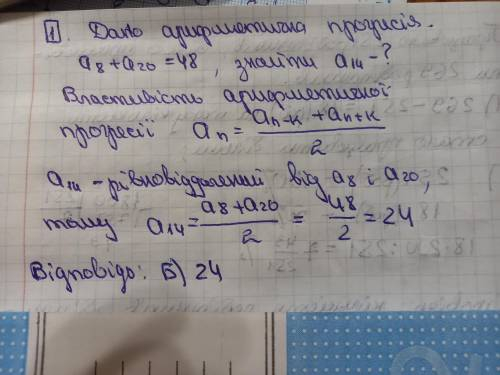 1. Дано арифметична прогресія.
a₈ + a₂₀ = 48, знайти a₁₄ - ?
Властивість арифметичної
прогресії aₙ = (aₙ₋ₖ + aₙ₊ₖ)/2
a₁₄ - рівновіддалений від a₈ і a₂₀,
тому a₁₄ = (a₈ + a₂₀)/2 = 48/2 = 24
Відповідь: Б) 24